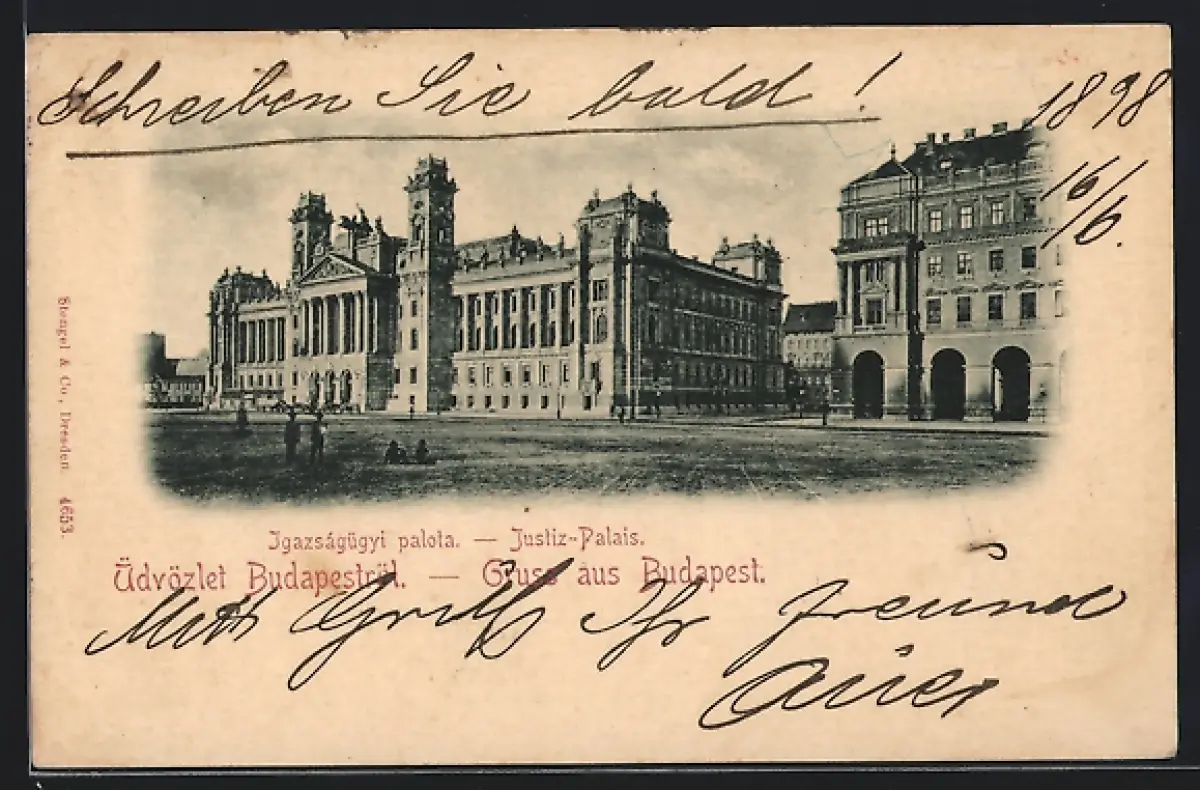 Schreiben Sie bald!
1898
16/6.
Stengel & Co., Dresden 4653.
Igazságügyi palota. — Justiz-Palais.
Üdvözlet Budapestről. — Gruss aus Budapest.
Mit Gruß Ihr Freund
Auer